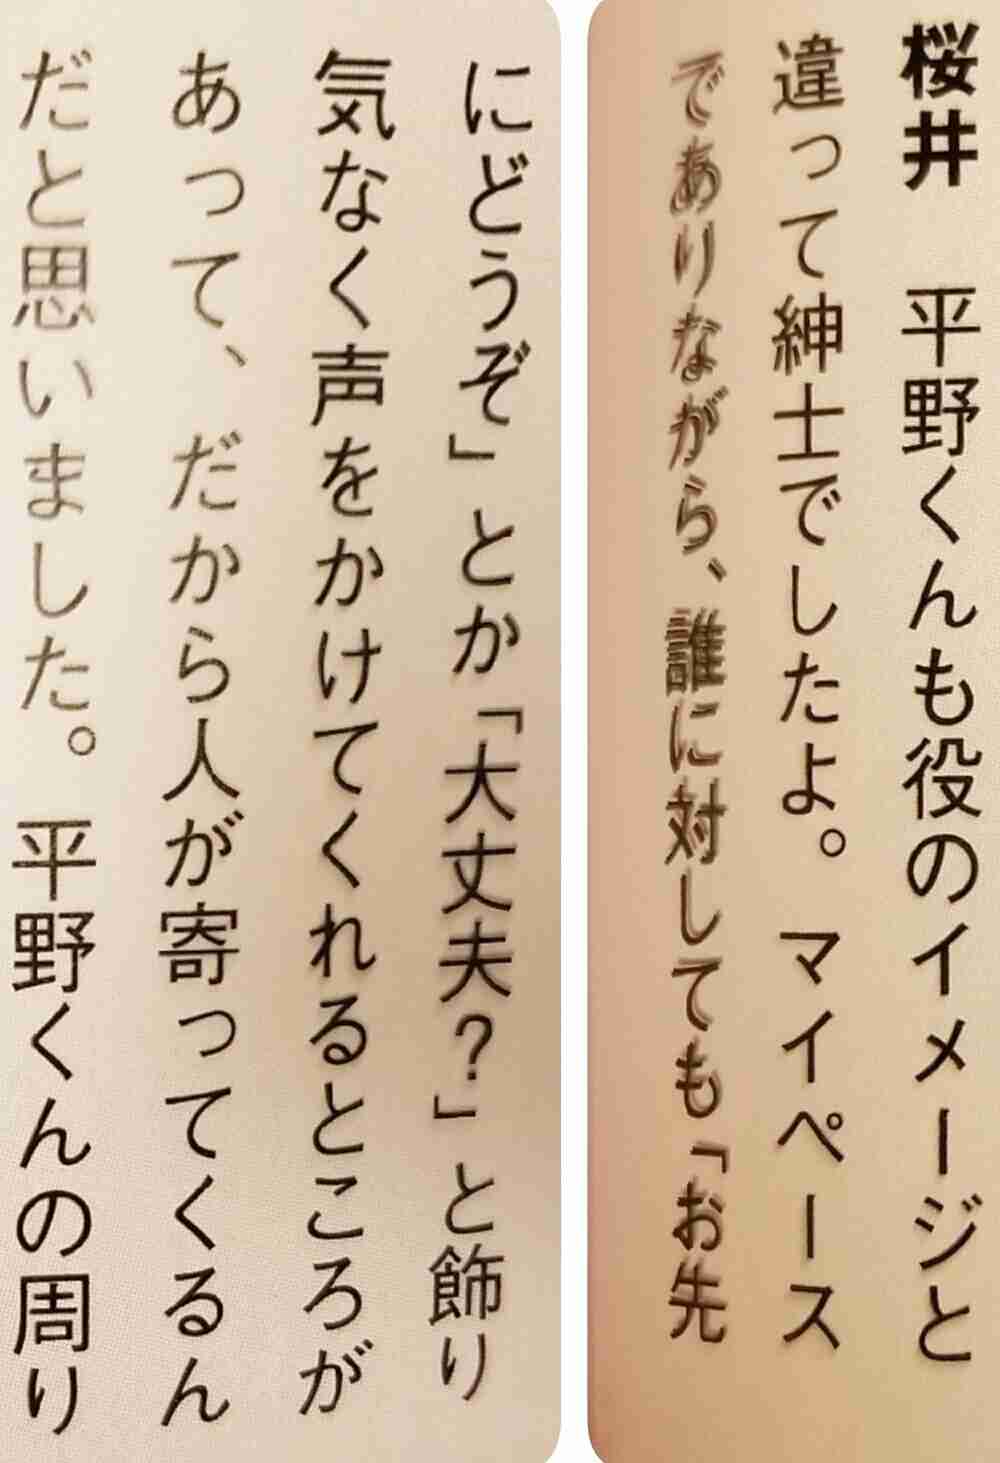 桜井　平野くんも役のイメージと
違って紳士でしたよ。マイペース
でありながら、誰に対しても「お先
にどうぞ」とか「大丈夫?」と飾り
気なく声をかけてくれるところが
あって、だから人が寄ってくるん
だと思いました。平野くんの周り